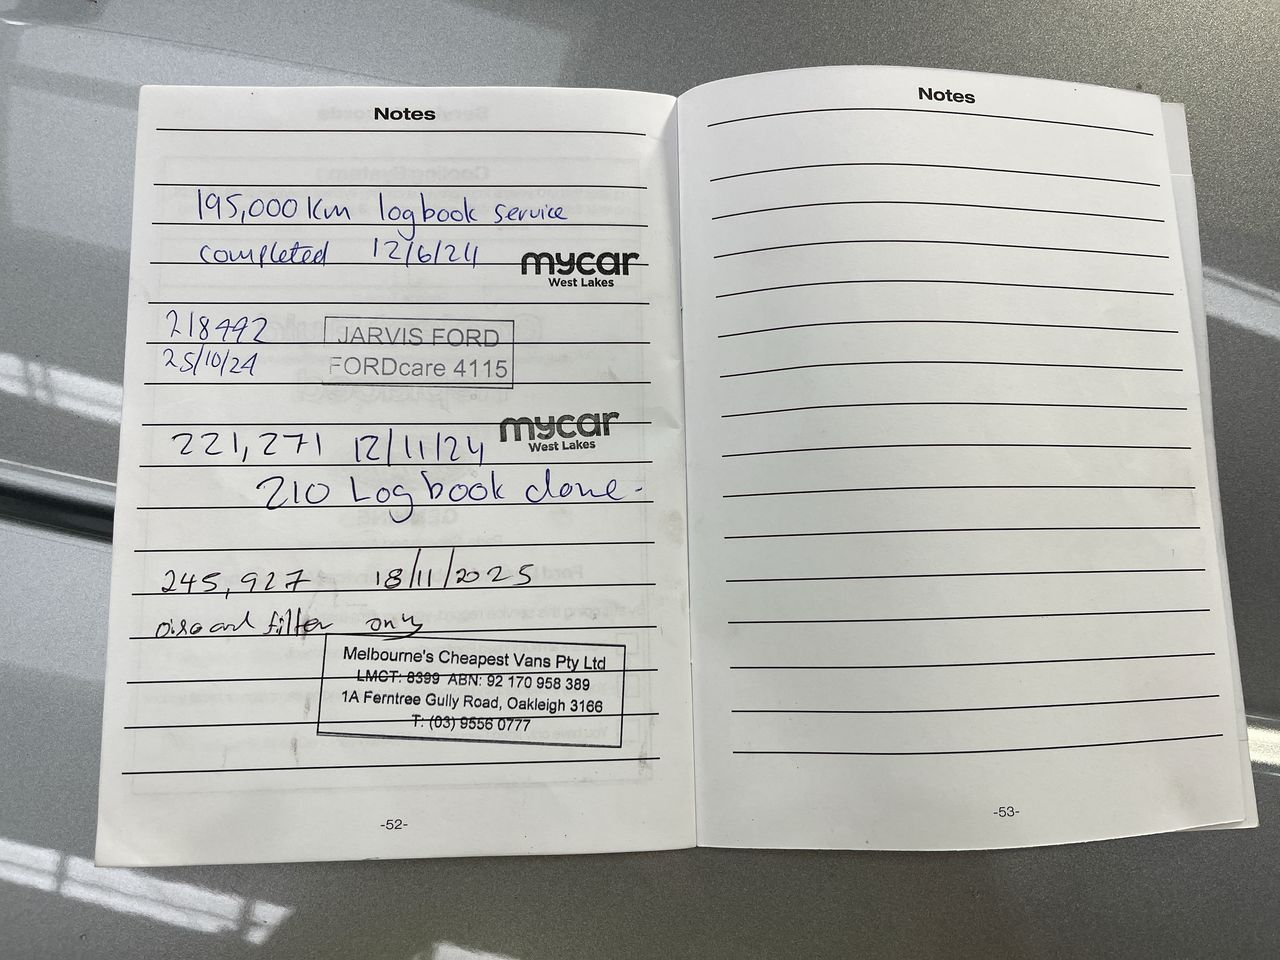 Notes
195,000 Km logbook service
completed 12/6/24
mycar
West Lakes
218492
25/10/24
JARVIS FORD
FORDcare 4115
mycar
West Lakes
221,271 12/11/24
210 Logbook done.
245,927 18/11/2025
filter only
Melbourne's Cheapest Vans Pty Ltd
LMCT: 8399 ABN: 92 170 958 389
1A Ferntree Gully Road, Oakleigh 3166
T: (03) 9556 0777
-52-
Notes
-53-